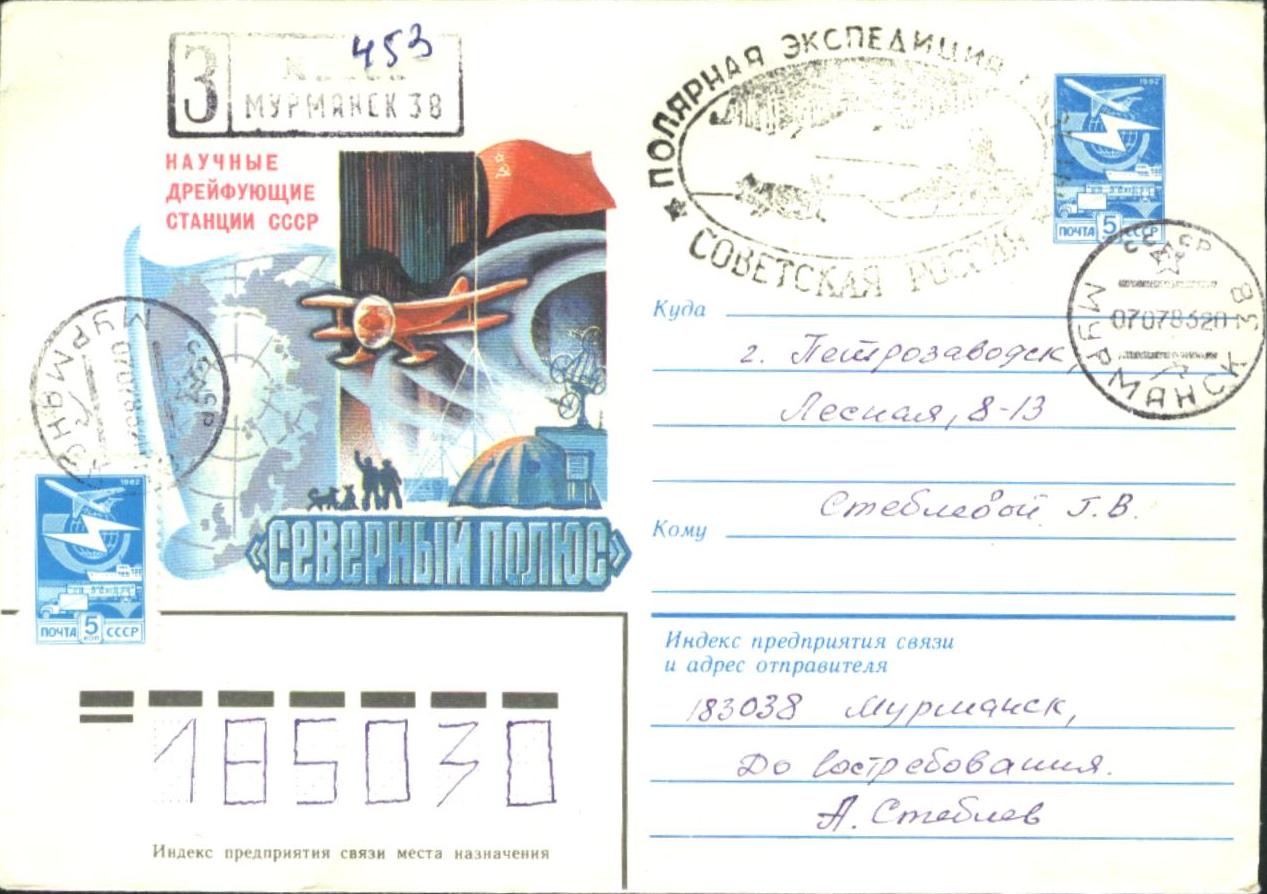 453
З
МУРМАНСК 38
НАУЧНЫЕ
ДРЕЙФУЮЩИЕ
СТАНЦИИ СССР
«СЕВЕРНЫЙ ПОЛЮС»
ПОЛЯРНАЯ ЭКСПЕДИЦИЯ
СОВЕТСКАЯ РОССИЯ
1982
ПОЧТА 5 СССР
СССР
07078320
МУРМАНСК 38
СССР
МУРМАНСК
1982
ПОЧТА 5 КОП СССР
Куда
г. Петрозаводск,
Лесная, 8-13
Стеблевой Г.В.
Кому
Индекс предприятия связи
и адрес отправителя
183038 Мурманск,
До востребования.
А. Стеблев
185030
Индекс предприятия связи места назначения